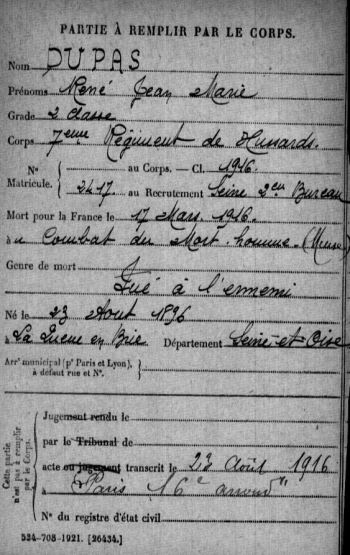 PARTIE À REMPLIR PAR LE CORPS.
Nom DUPAS
Prénoms René Jean Marie
Grade 2 classe
Corps 7eme Régiment de Hussards.
N° au Corps. — Cl. 1916.
Matricule. 2417. au Recrutement Seine 2eu Bureau
Mort pour la France le 17 Mars 1916.
à u Combat du Mort-homme-(Meuse
Genre de mort
Tué à l'ennemi
Né le 23 Aout 1896
à La Queue en Brie Département Seine-et-Oise
Arrt municipal (pr Paris et Lyon),
à défaut rue et N°.
Cette partie
n'est pas à remplir
par le Corps.
Jugement rendu le
par le Tribunal de
acte ou jugement transcrit le 23 Août 1916
à Paris 16e arrondt
N° du registre d'état civil
534-708-1921. [26434.]